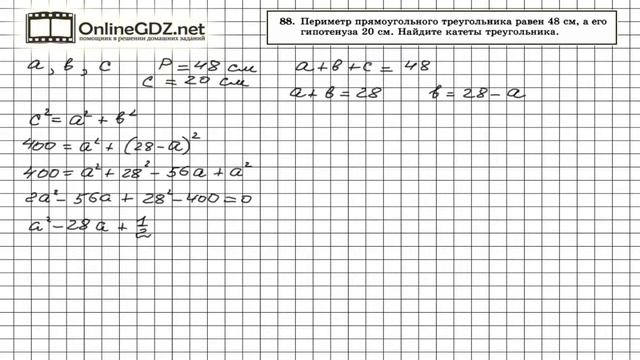 OnlineGDZ.net
помощник в решении домашних заданий
88. Периметр прямоугольного треугольника равен 48 см, а его
гипотенуза 20 см. Найдите катеты треугольника.
a, в, c P = 48 см a + в + c = 48
c = 20 см a + в = 28 в = 28 - a
c² = a² + в²
400 = a² + (28 - a)²
400 = a² + 28² - 56a + a²
2a² - 56a + 28² - 400 = 0
a² - 28a + 1/2